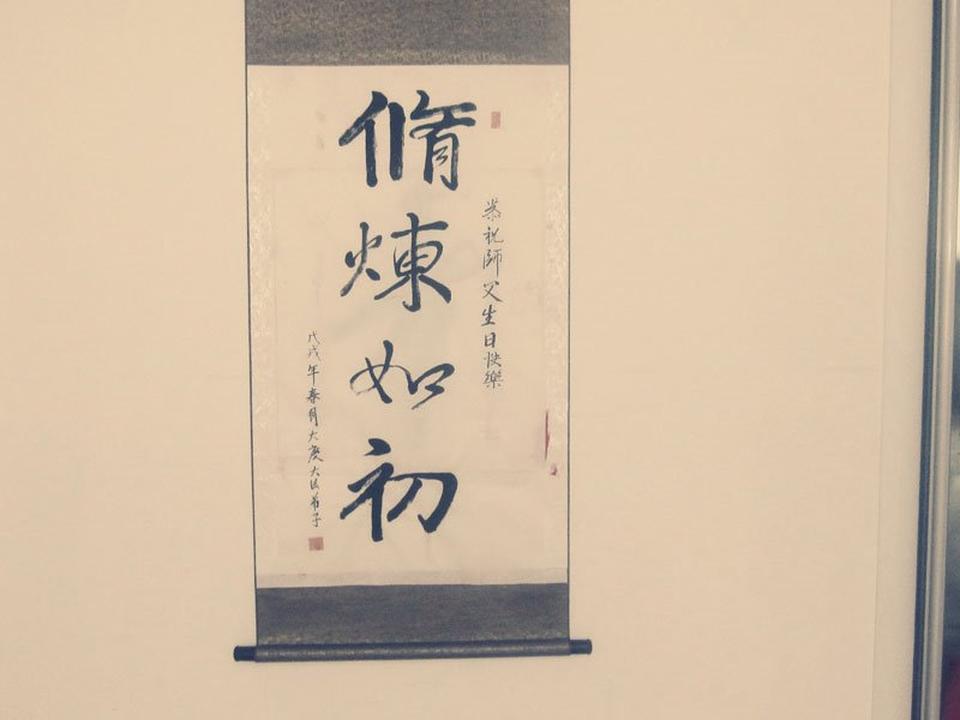 恭祝師父生日快樂
脩煉如初
戊戌年春月大慶大法弟子